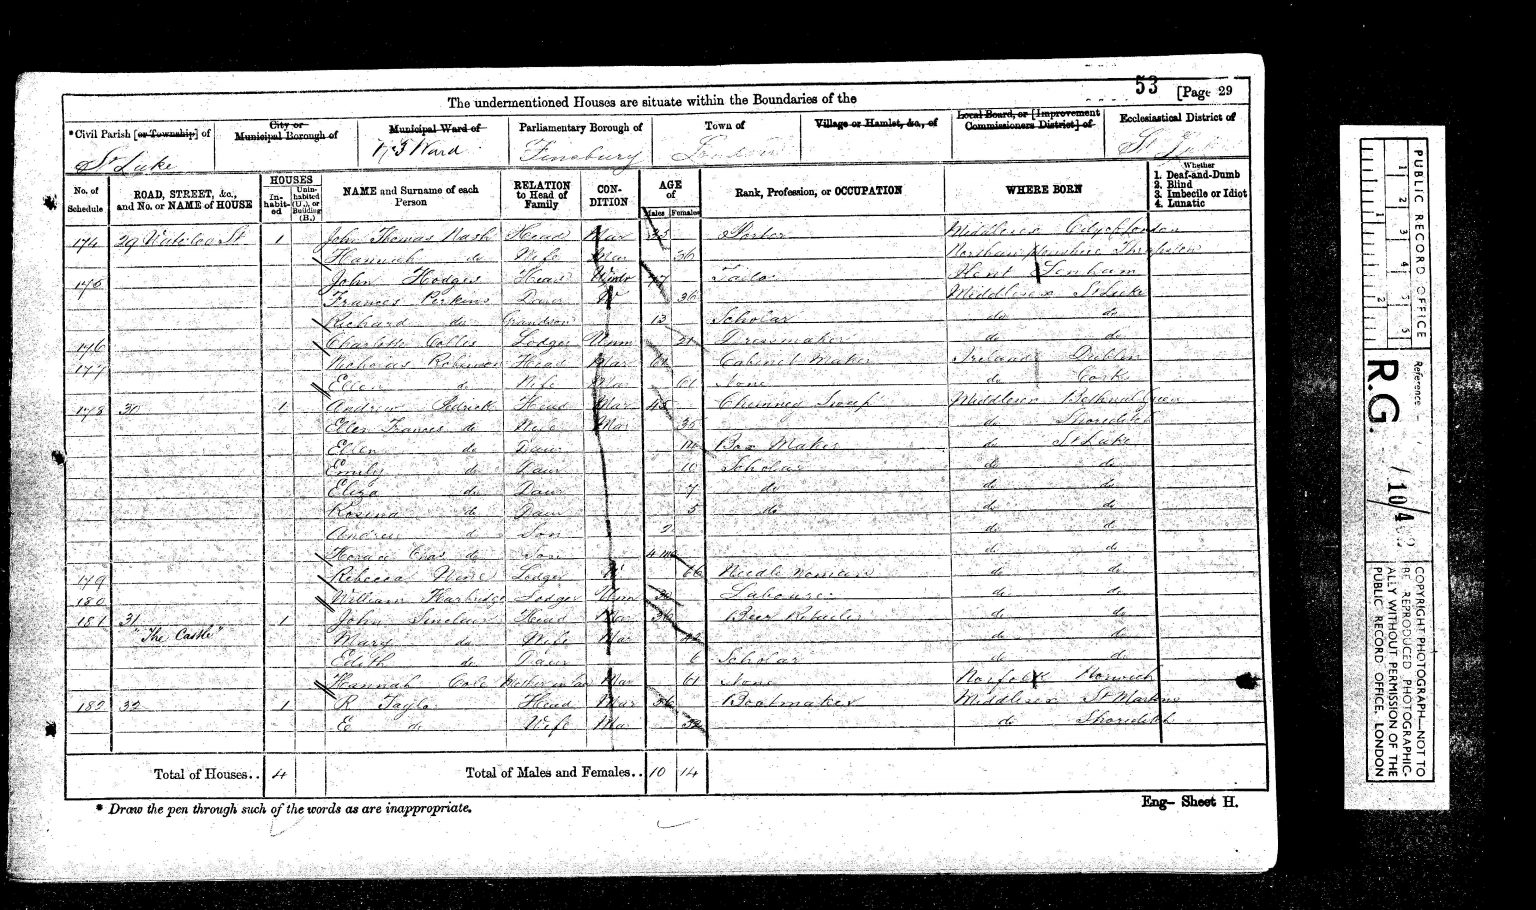 53 [Page 29
The undermentioned Houses are situate within the Boundaries of the
*Civil Parish [or Township] of City or Municipal Borough of Municipal Ward of Parliamentary Borough of Town of Village or Hamlet, &c., of Local Board, or [Improvement Commissioners District] of Ecclesiastical District of
St Luke Ward Finsbury London St
No. of Schedule ROAD, STREET, &c., and No. or NAME of HOUSE HOUSES Inhabited Uninhabited (U.), or Building (B.) NAME and Surname of each Person RELATION to Head of Family CONDITION AGE of Males Females Rank, Profession, or OCCUPATION WHERE BORN Whether 1. Deaf-and-Dumb 2. Blind 3. Imbecile or Idiot 4. Lunatic
174 29 Waterloo St 1 John Thomas Nash Head Mar Porter Middlesex City of London
Hannah do Wife Mar 36
175 John Hodges Head Tailor Kent Lenham
Frances Perkins Daur W 36 Middlesex St Luke
Richard do Grandson 13 Scholar do do
176 Charlotte Collis Lodger Unm 21 Dressmaker do do
177 Nicholas Head Mar Cabinet Maker Ireland Dublin
Ellen do Wife Mar 61 None do Cork
178 30 1 Andrew Head Mar 45 Chimney Sweep Middlesex Bethnal Green
Ellen Frances do Wife Mar 35 do Shoreditch
Ellen do Daur Box Maker do St Luke
Emily do Daur 10 Scholar do do
Eliza do Daur 7 do do do
Rosina do Daur 5 do do do
Andrew d Son 2 do d
Horace Chas do Son 4 mo do do
179 Rebecca Lodger W 66 Needlewoman do do
180 William Harbridge Lodger Unm Labourer do do
181 31 1 John Sinclair Head Mar 36 Beer Retailer do do
"The Castle" Mary do Wife Mar do do
Edith do Daur 6 Scholar do do
Hannah Cole Mother in law Mar 61 None Norfolk Norwich
182 32 1 R Taylor Head Mar Bootmaker Middlesex St Martins
E do Wife Ma do Shoreditch
Total of Houses.. 4 Total of Males and Females.. 10 14
* Draw the pen through such of the words as are inappropriate.
Eng- Sheet H.
PUBLIC RECORD OFFICE
1 2 3 4 5
1 2
Reference
R.G. 10/4
COPYRIGHT PHOTOGRAPH—NOT TO BE REPRODUCED PHOTOGRAPHICALLY WITHOUT PERMISSION OF THE PUBLIC RECORD OFFICE, LONDON